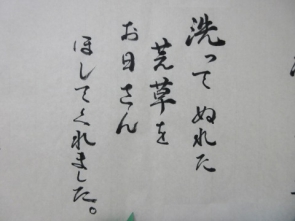 洗ってぬれた
芒草を
お日さん
ほしてくれました。